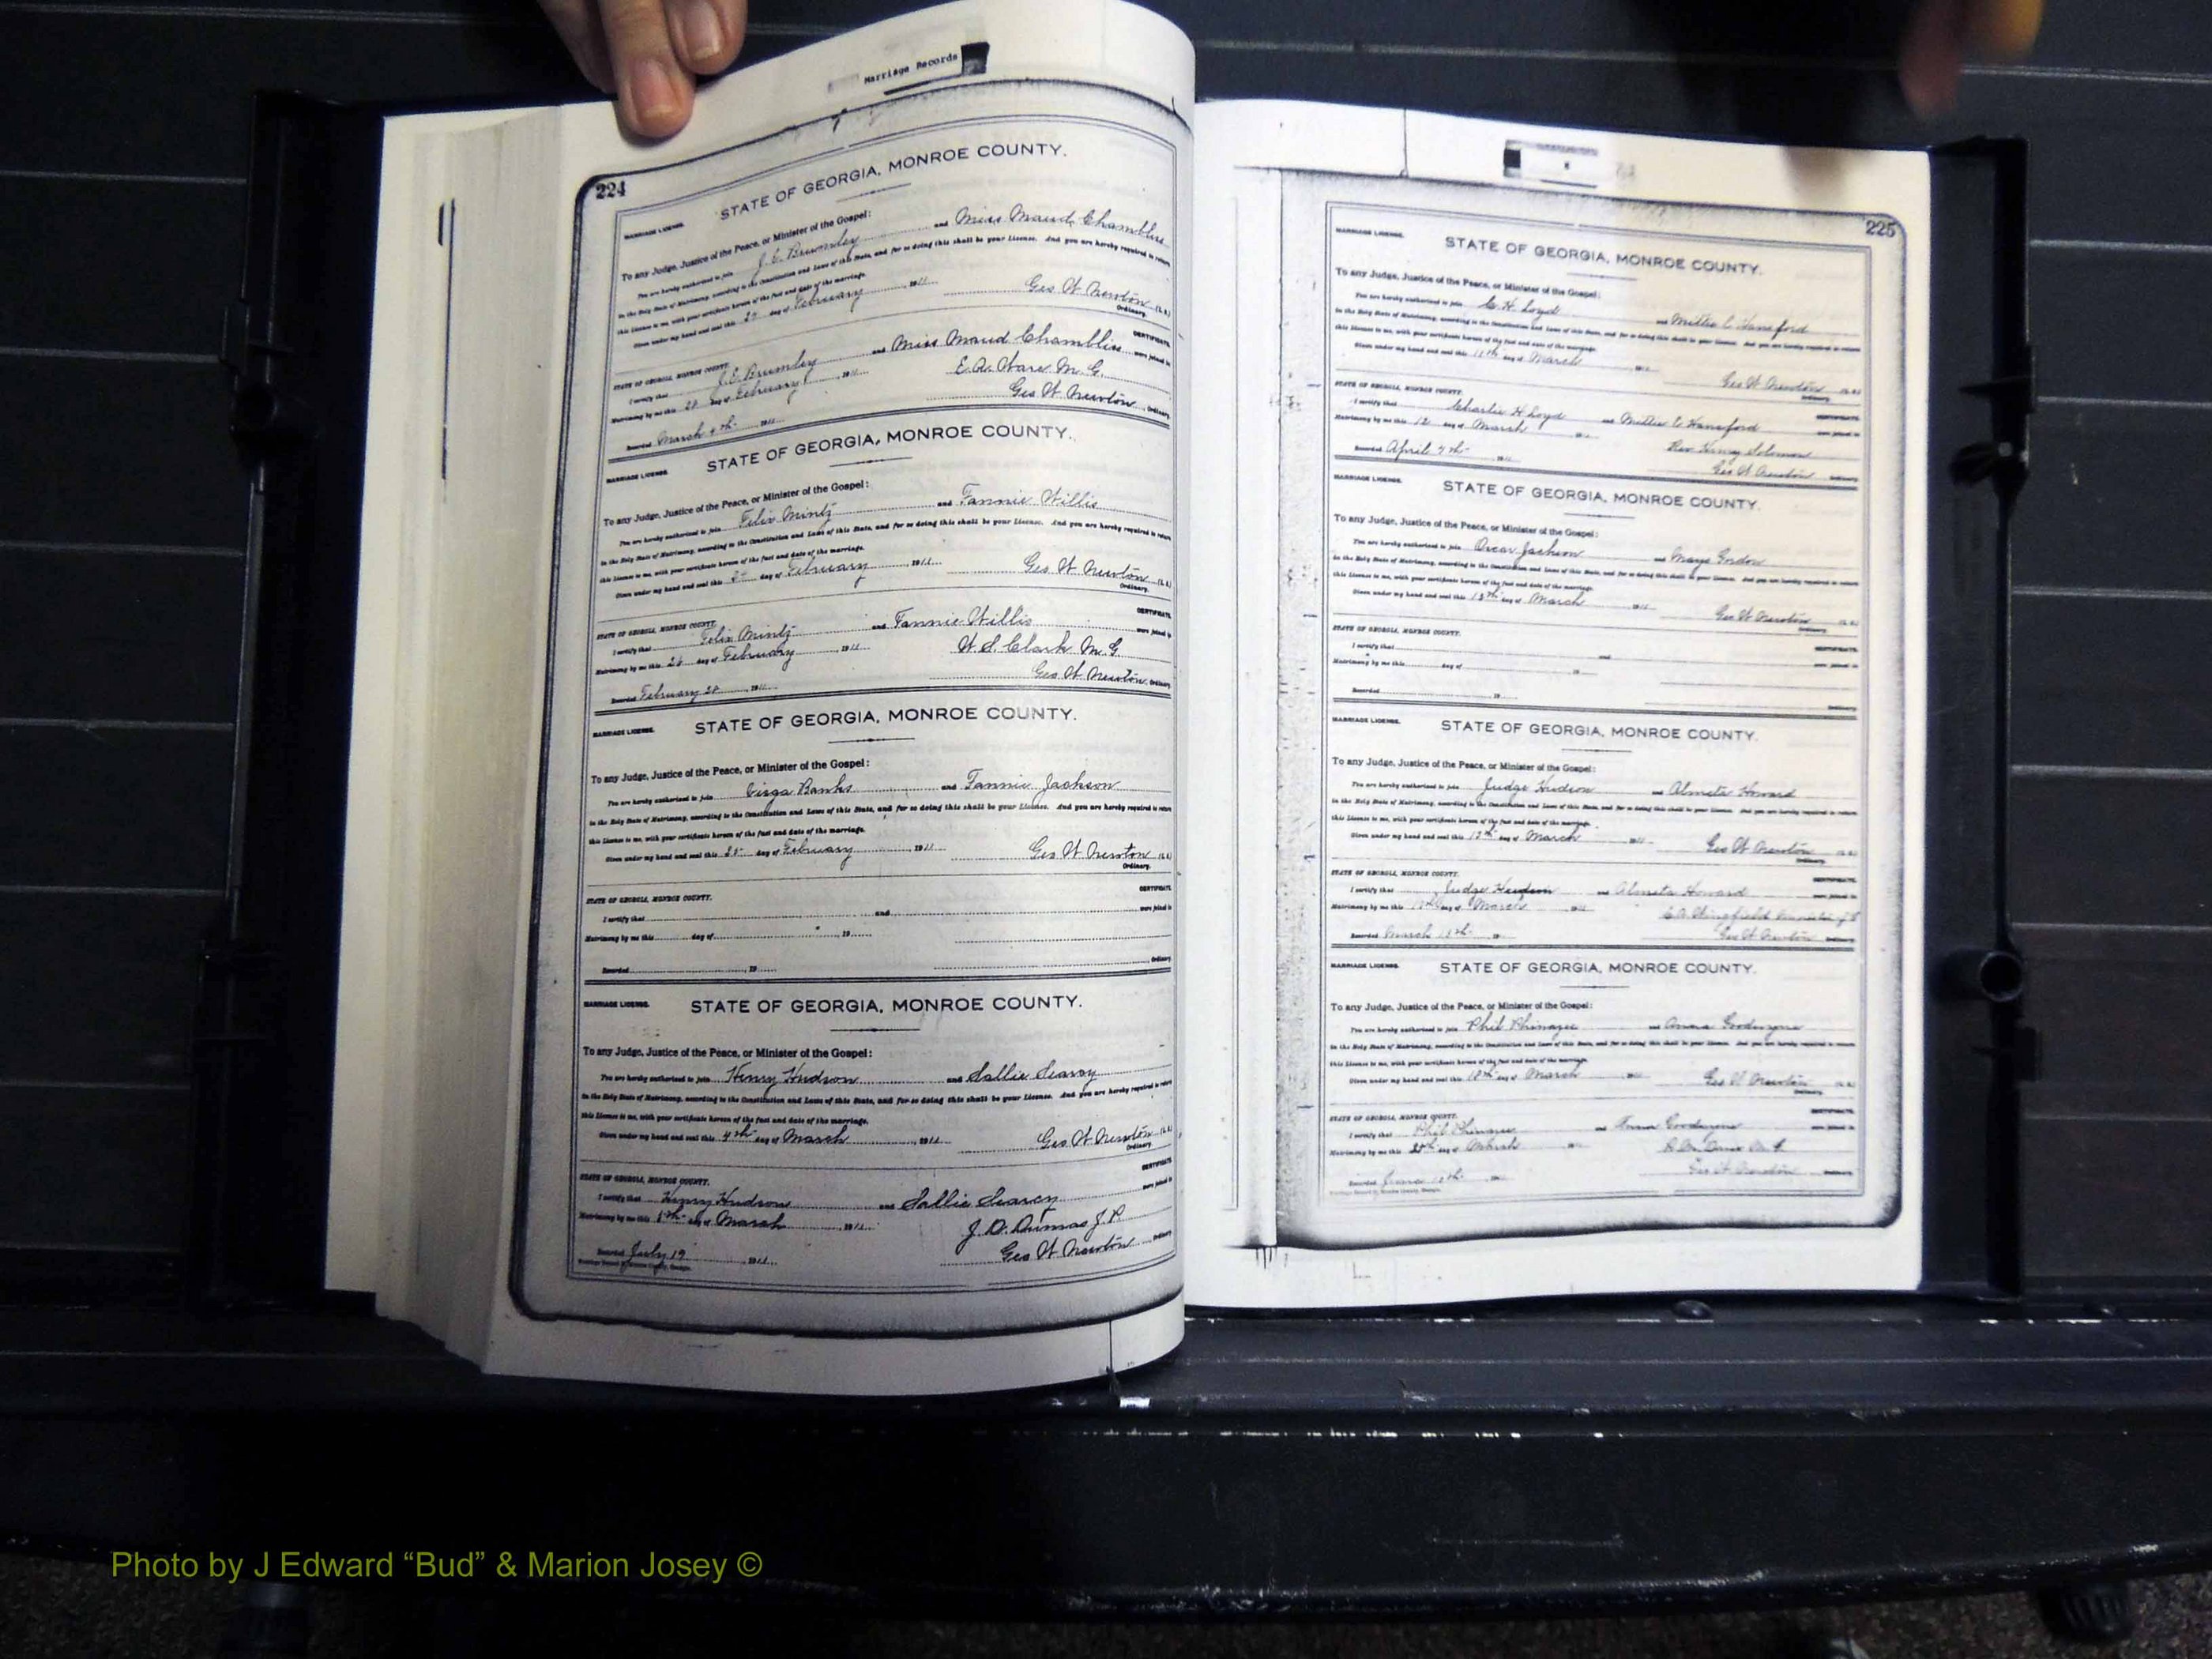 Marriage Records
224
STATE OF GEORGIA, MONROE COUNTY.
MARRIAGE LICENSE.
To any Judge, Justice of the Peace, or Minister of the Gospel:
You are hereby authorized to join J. E. Brumley and Miss Maud Chambliss
in the Holy State of Matrimony, according to the Constitution and Laws of this State, and for so doing this shall be your License. And you are hereby required to return
this License to me, with your certificate hereon of the fact and date of the marriage.
Given under my hand and seal this day of February 1911 Geo W Newton (L. S.)
Ordinary.
STATE OF GEORGIA, MONROE COUNTY. CERTIFICATE.
I certify that J. E. Brumley and Miss Maud Chambliss were joined in
Matrimony by me this day of February 1911 E. A. Ware M. G.
Recorded March 4th 1911 Geo W Newton Ordinary.
MARRIAGE LICENSE. STATE OF GEORGIA, MONROE COUNTY.
To any Judge, Justice of the Peace, or Minister of the Gospel:
You are hereby authorized to join Felix Mintz and Fannie Willis
in the Holy State of Matrimony, according to the Constitution and Laws of this State, and for so doing this shall be your License. And you are hereby required to return
this License to me, with your certificate hereon of the fact and date of the marriage.
Given under my hand and seal this day of February 1911 Geo W Newton (L. S.)
Ordinary.
STATE OF GEORGIA, MONROE COUNTY. CERTIFICATE.
I certify that Felix Mintz and Fannie Willis were joined in
Matrimony by me this 26 day of February 1911 W. S. Clark M. G.
Recorded February 28 1911 Geo W Newton Ordinary.
MARRIAGE LICENSE. STATE OF GEORGIA, MONROE COUNTY.
To any Judge, Justice of the Peace, or Minister of the Gospel:
You are hereby authorized to join Banks and Fannie Jackson
in the Holy State of Matrimony, according to the Constitution and Laws of this State, and for so doing this shall be your License. And you are hereby required to return
this License to me, with your certificate hereon of the fact and date of the marriage.
Given under my hand and seal this 25 day of February 1911 Geo W Newton (L. S.)
Ordinary.
STATE OF GEORGIA, MONROE COUNTY. CERTIFICATE.
I certify that and were joined in
Matrimony by me this day of 19
Recorded 19 Ordinary.
MARRIAGE LICENSE. STATE OF GEORGIA, MONROE COUNTY.
To any Judge, Justice of the Peace, or Minister of the Gospel:
You are hereby authorized to join Henry Hudson and Sallie Searcy
in the Holy State of Matrimony, according to the Constitution and Laws of this State, and for so doing this shall be your License. And you are hereby required to return
this License to me, with your certificate hereon of the fact and date of the marriage.
Given under my hand and seal this 4th day of March 1911 Geo W Newton (L. S.)
Ordinary.
STATE OF GEORGIA, MONROE COUNTY. CERTIFICATE.
I certify that Henry Hudson and Sallie Searcy were joined in
Matrimony by me this 5th day of March 1911 J. D. Dumas J. P.
Recorded July 19 1911 Geo W Newton Ordinary.
225
MARRIAGE LICENSE. STATE OF GEORGIA, MONROE COUNTY.
To any Judge, Justice of the Peace, or Minister of the Gospel:
You are hereby authorized to join C. H. Loyd and Mittie C Hansford
in the Holy State of Matrimony, according to the Constitution and Laws of this State, and for so doing this shall be your License. And you are hereby required to return
this License to me, with your certificate hereon of the fact and date of the marriage.
Given under my hand and seal this 11th day of March 1911 Geo W Newton (L. S.)
Ordinary.
STATE OF GEORGIA, MONROE COUNTY. CERTIFICATE.
I certify that Charlie H Loyd and Mittie C Hansford were joined in
Matrimony by me this 12 day of March 1911 Rev Henry Solomon
Recorded April 7th 1911 Geo W Newton Ordinary.
MARRIAGE LICENSE. STATE OF GEORGIA, MONROE COUNTY.
To any Judge, Justice of the Peace, or Minister of the Gospel:
You are hereby authorized to join Oscar Jackson and Mary Gordon
in the Holy State of Matrimony, according to the Constitution and Laws of this State, and for so doing this shall be your License. And you are hereby required to return
this License to me, with your certificate hereon of the fact and date of the marriage.
Given under my hand and seal this day of March 1911 Geo W Newton (L. S.)
Ordinary.
STATE OF GEORGIA, MONROE COUNTY. CERTIFICATE.
I certify that and were joined in
Matrimony by me this day of 19
Recorded 19 Ordinary.
MARRIAGE LICENSE. STATE OF GEORGIA, MONROE COUNTY.
To any Judge, Justice of the Peace, or Minister of the Gospel:
You are hereby authorized to join Judge Hudson and Almeta Howard
in the Holy State of Matrimony, according to the Constitution and Laws of this State, and for so doing this shall be your License. And you are hereby required to return
this License to me, with your certificate hereon of the fact and date of the marriage.
Given under my hand and seal this day of March 1911 Geo W Newton (L. S.)
Ordinary.
STATE OF GEORGIA, MONROE COUNTY. CERTIFICATE.
I certify that Judge Hudson and Almeta Howard were joined in
Matrimony by me this day of March 1911 Wingfield
Recorded March Geo W Newton Ordinary.
MARRIAGE LICENSE. STATE OF GEORGIA, MONROE COUNTY.
To any Judge, Justice of the Peace, or Minister of the Gospel:
You are hereby authorized to join Phil Phinazee and
in the Holy State of Matrimony, according to the Constitution and Laws of this State, and for so doing this shall be your License. And you are hereby required to return
this License to me, with your certificate hereon of the fact and date of the marriage.
Given under my hand and seal this 18th day of March 1911 Geo W Newton (L. S.)
STATE OF GEORGIA, MONROE COUNTY. CERTIFICATE.
I certify that Phil Phinazee and were joined in
Matrimony by me this day of March
Recorded Geo W Newton Ordinary.
Photo by J Edward “Bud” & Marion Josey ©